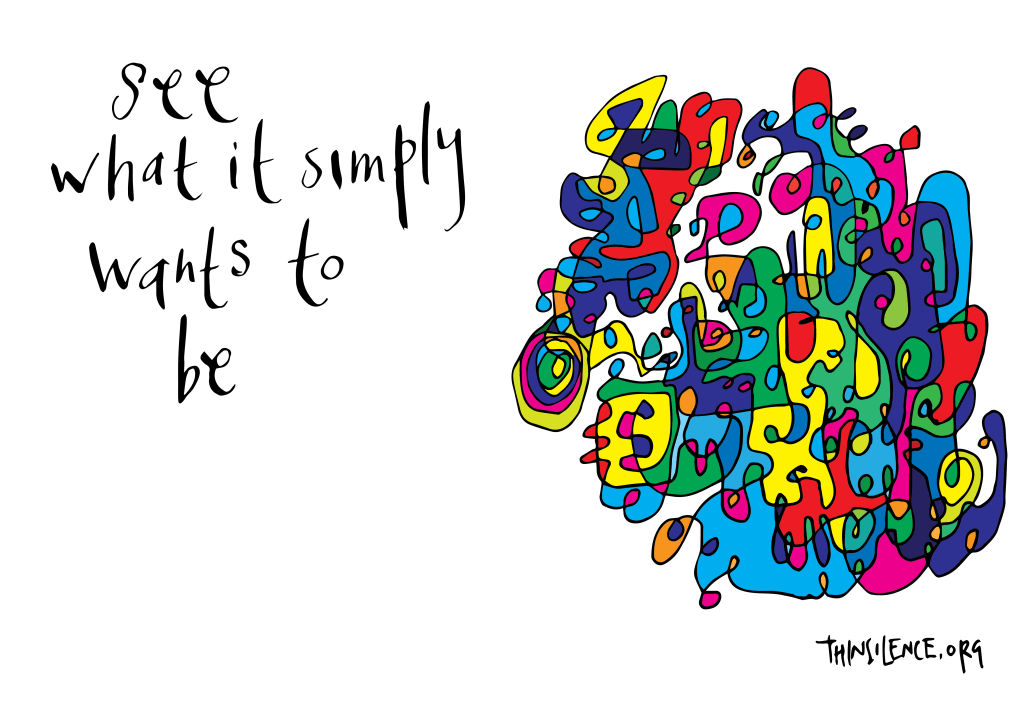 see
what it simply
wants to
be
THINSILENCE.ORG